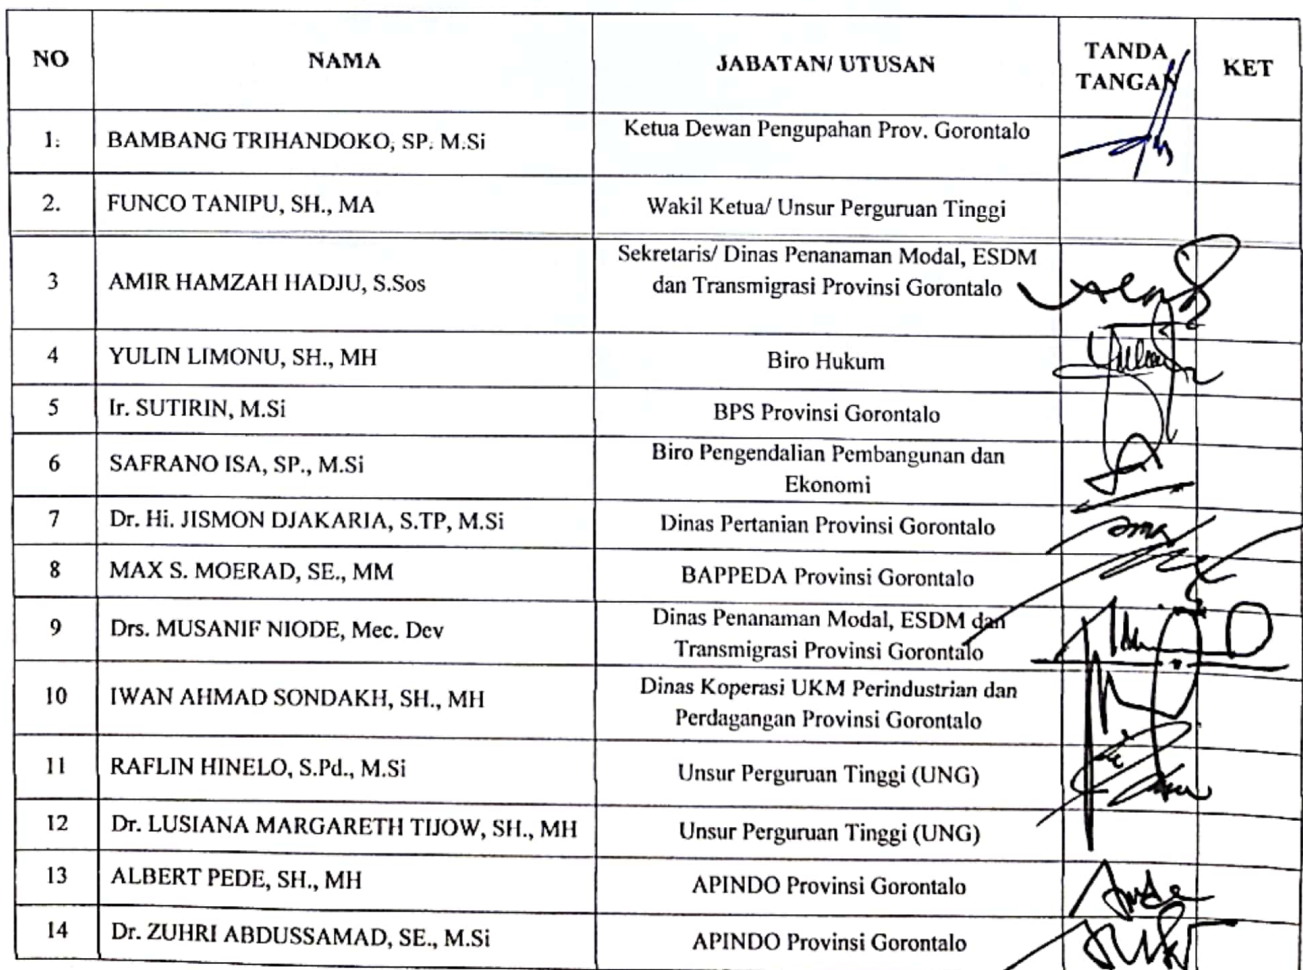 NO NAMA JABATAN/ UTUSAN TANDA TANGAN KET
1. BAMBANG TRIHANDOKO, SP. M.Si Ketua Dewan Pengupahan Prov. Gorontalo
2. FUNCO TANIPU, SH., MA Wakil Ketua/ Unsur Perguruan Tinggi
3 AMIR HAMZAH HADJU, S.Sos Sekretaris/ Dinas Penanaman Modal, ESDM
dan Transmigrasi Provinsi Gorontalo
4 YULIN LIMONU, SH., MH Biro Hukum
5 Ir. SUTIRIN, M.Si BPS Provinsi Gorontalo
6 SAFRANO ISA, SP., M.Si Biro Pengendalian Pembangunan dan
Ekonomi
7 Dr. Hi. JISMON DJAKARIA, S.TP, M.Si Dinas Pertanian Provinsi Gorontalo
8 MAX S. MOERAD, SE., MM BAPPEDA Provinsi Gorontalo
9 Drs. MUSANIF NIODE, Mec. Dev Dinas Penanaman Modal, ESDM dan
Transmigrasi Provinsi Gorontalo
10 IWAN AHMAD SONDAKH, SH., MH Dinas Koperasi UKM Perindustrian dan
Perdagangan Provinsi Gorontalo
11 RAFLIN HINELO, S.Pd., M.Si Unsur Perguruan Tinggi (UNG)
12 Dr. LUSIANA MARGARETH TIJOW, SH., MH Unsur Perguruan Tinggi (UNG)
13 ALBERT PEDE, SH., MH APINDO Provinsi Gorontalo
14 Dr. ZUHRI ABDUSSAMAD, SE., M.Si APINDO Provinsi Gorontalo